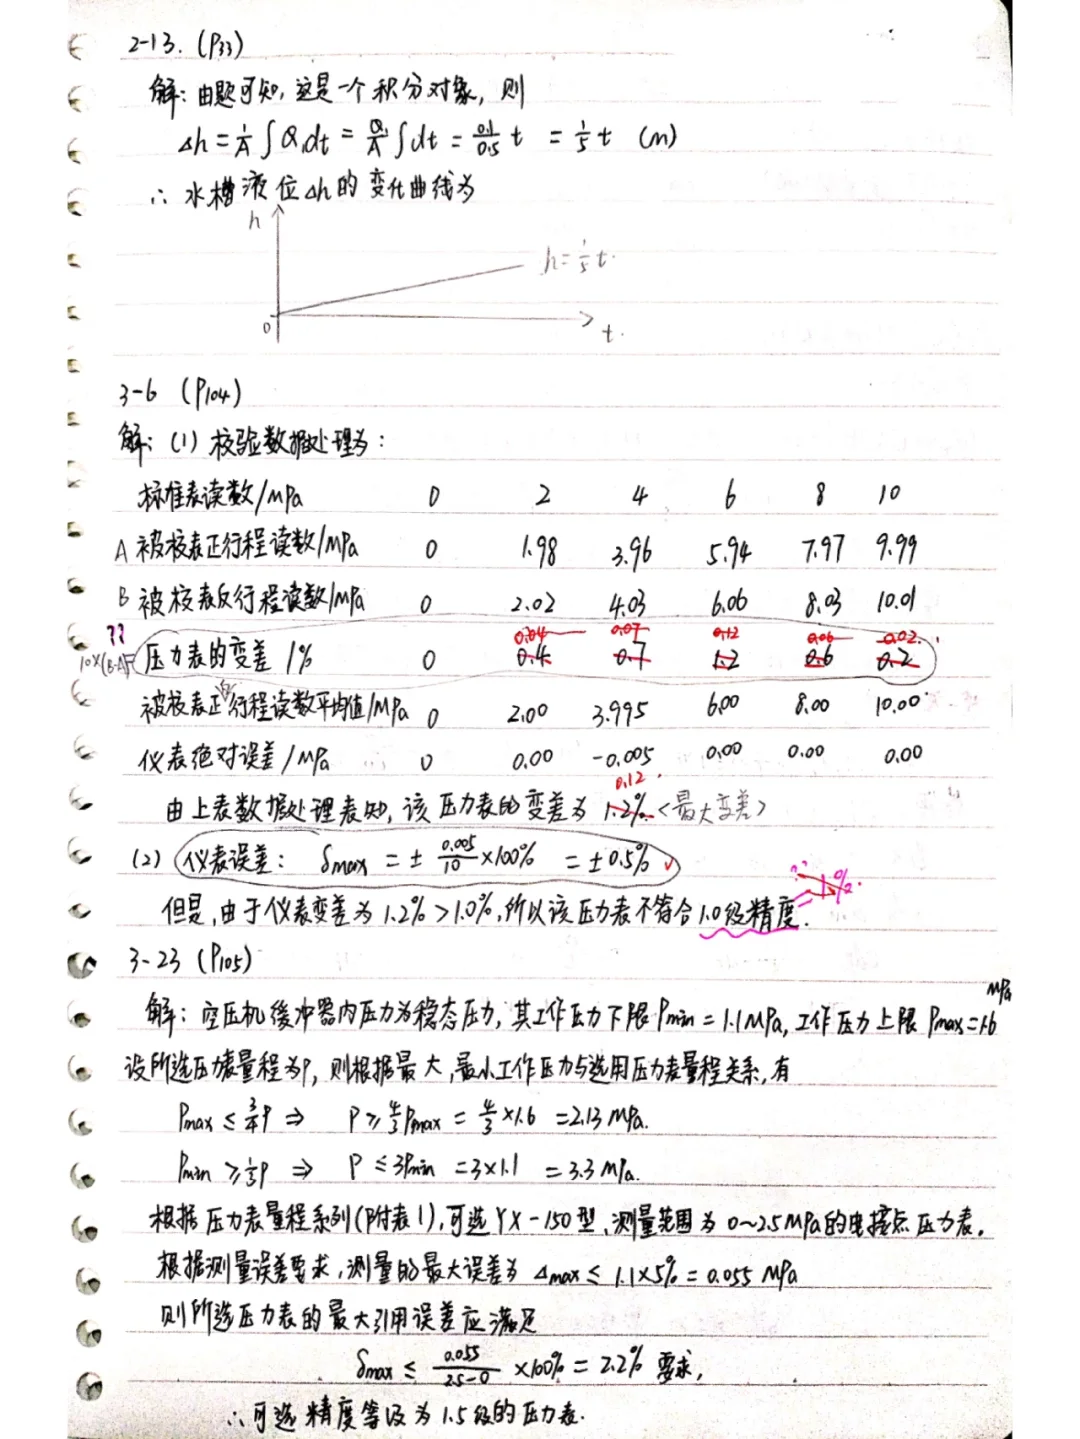 2-13. (P33)
解:由题可知,这是一个积分对象,则
Δh = 1/A ∫Q₁dt = Q₁/A ∫dt = 0.1/0.5 t = 1/5 t (m)
∴ 水槽液位Δh的变化曲线为
h
h=1/5 t.
0
t.
3-6 (P104)
解:(1) 校验数据处理为:
标准表读数/MPa 0 2 4 6 8 10
A 被校表正行程读数/MPa 0 1.98 3.96 5.94 7.97 9.99
B 被校表反行程读数/MPa 0 2.02 4.03 6.06 8.03 10.01
?? 0.04 0.07 0.12 0.06 0.02.
10×(B-A)= 压力表的变差/% 0 0.4 0.7 1.2 0.6 0.2
被校表正行程读数平均值/MPa 0 2.00 3.995 6.00 8.00 10.00
仪表绝对误差/MPa 0 0.00 -0.005 0.00 0.00 0.00
0.12.
由上表数据处理表知,该压力表的变差为1.2%.<最大变差>
(2) 仪表误差: δmax = ± 0.005/10 ×100% = ±0.5% ✓
但是,由于仪表变差为1.2%>1.0%,所以该压力表不符合1.0级精度. 1%.
3-23 (P105)
解:空压机缓冲器内压力为稳态压力,其工作压力下限Pmin=1.1MPa,工作压力上限Pmax=1.6 MPa
设所选压力表量程为P,则根据最大,最小工作压力与选用压力表量程关系,有
Pmax ≤ 3/4 P ⇒ P ≥ 4/3 Pmax = 4/3 ×1.6 = 2.13 MPa.
Pmin ≥ 1/3 P ⇒ P ≤ 3Pmin = 3×1.1 = 3.3 MPa.
根据压力表量程系列(P附表1),可选YX-150型,测量范围为0~25MPa的电接点压力表.
根据测量误差要求,测量的最大误差为 Δmax ≤ 1.1×5% = 0.055 MPa
则所选压力表的最大引用误差应满足
δmax ≤ 0.055/2.5-0 ×100% = 2.2% 要求,
∴可选精度等级为1.5级的压力表.